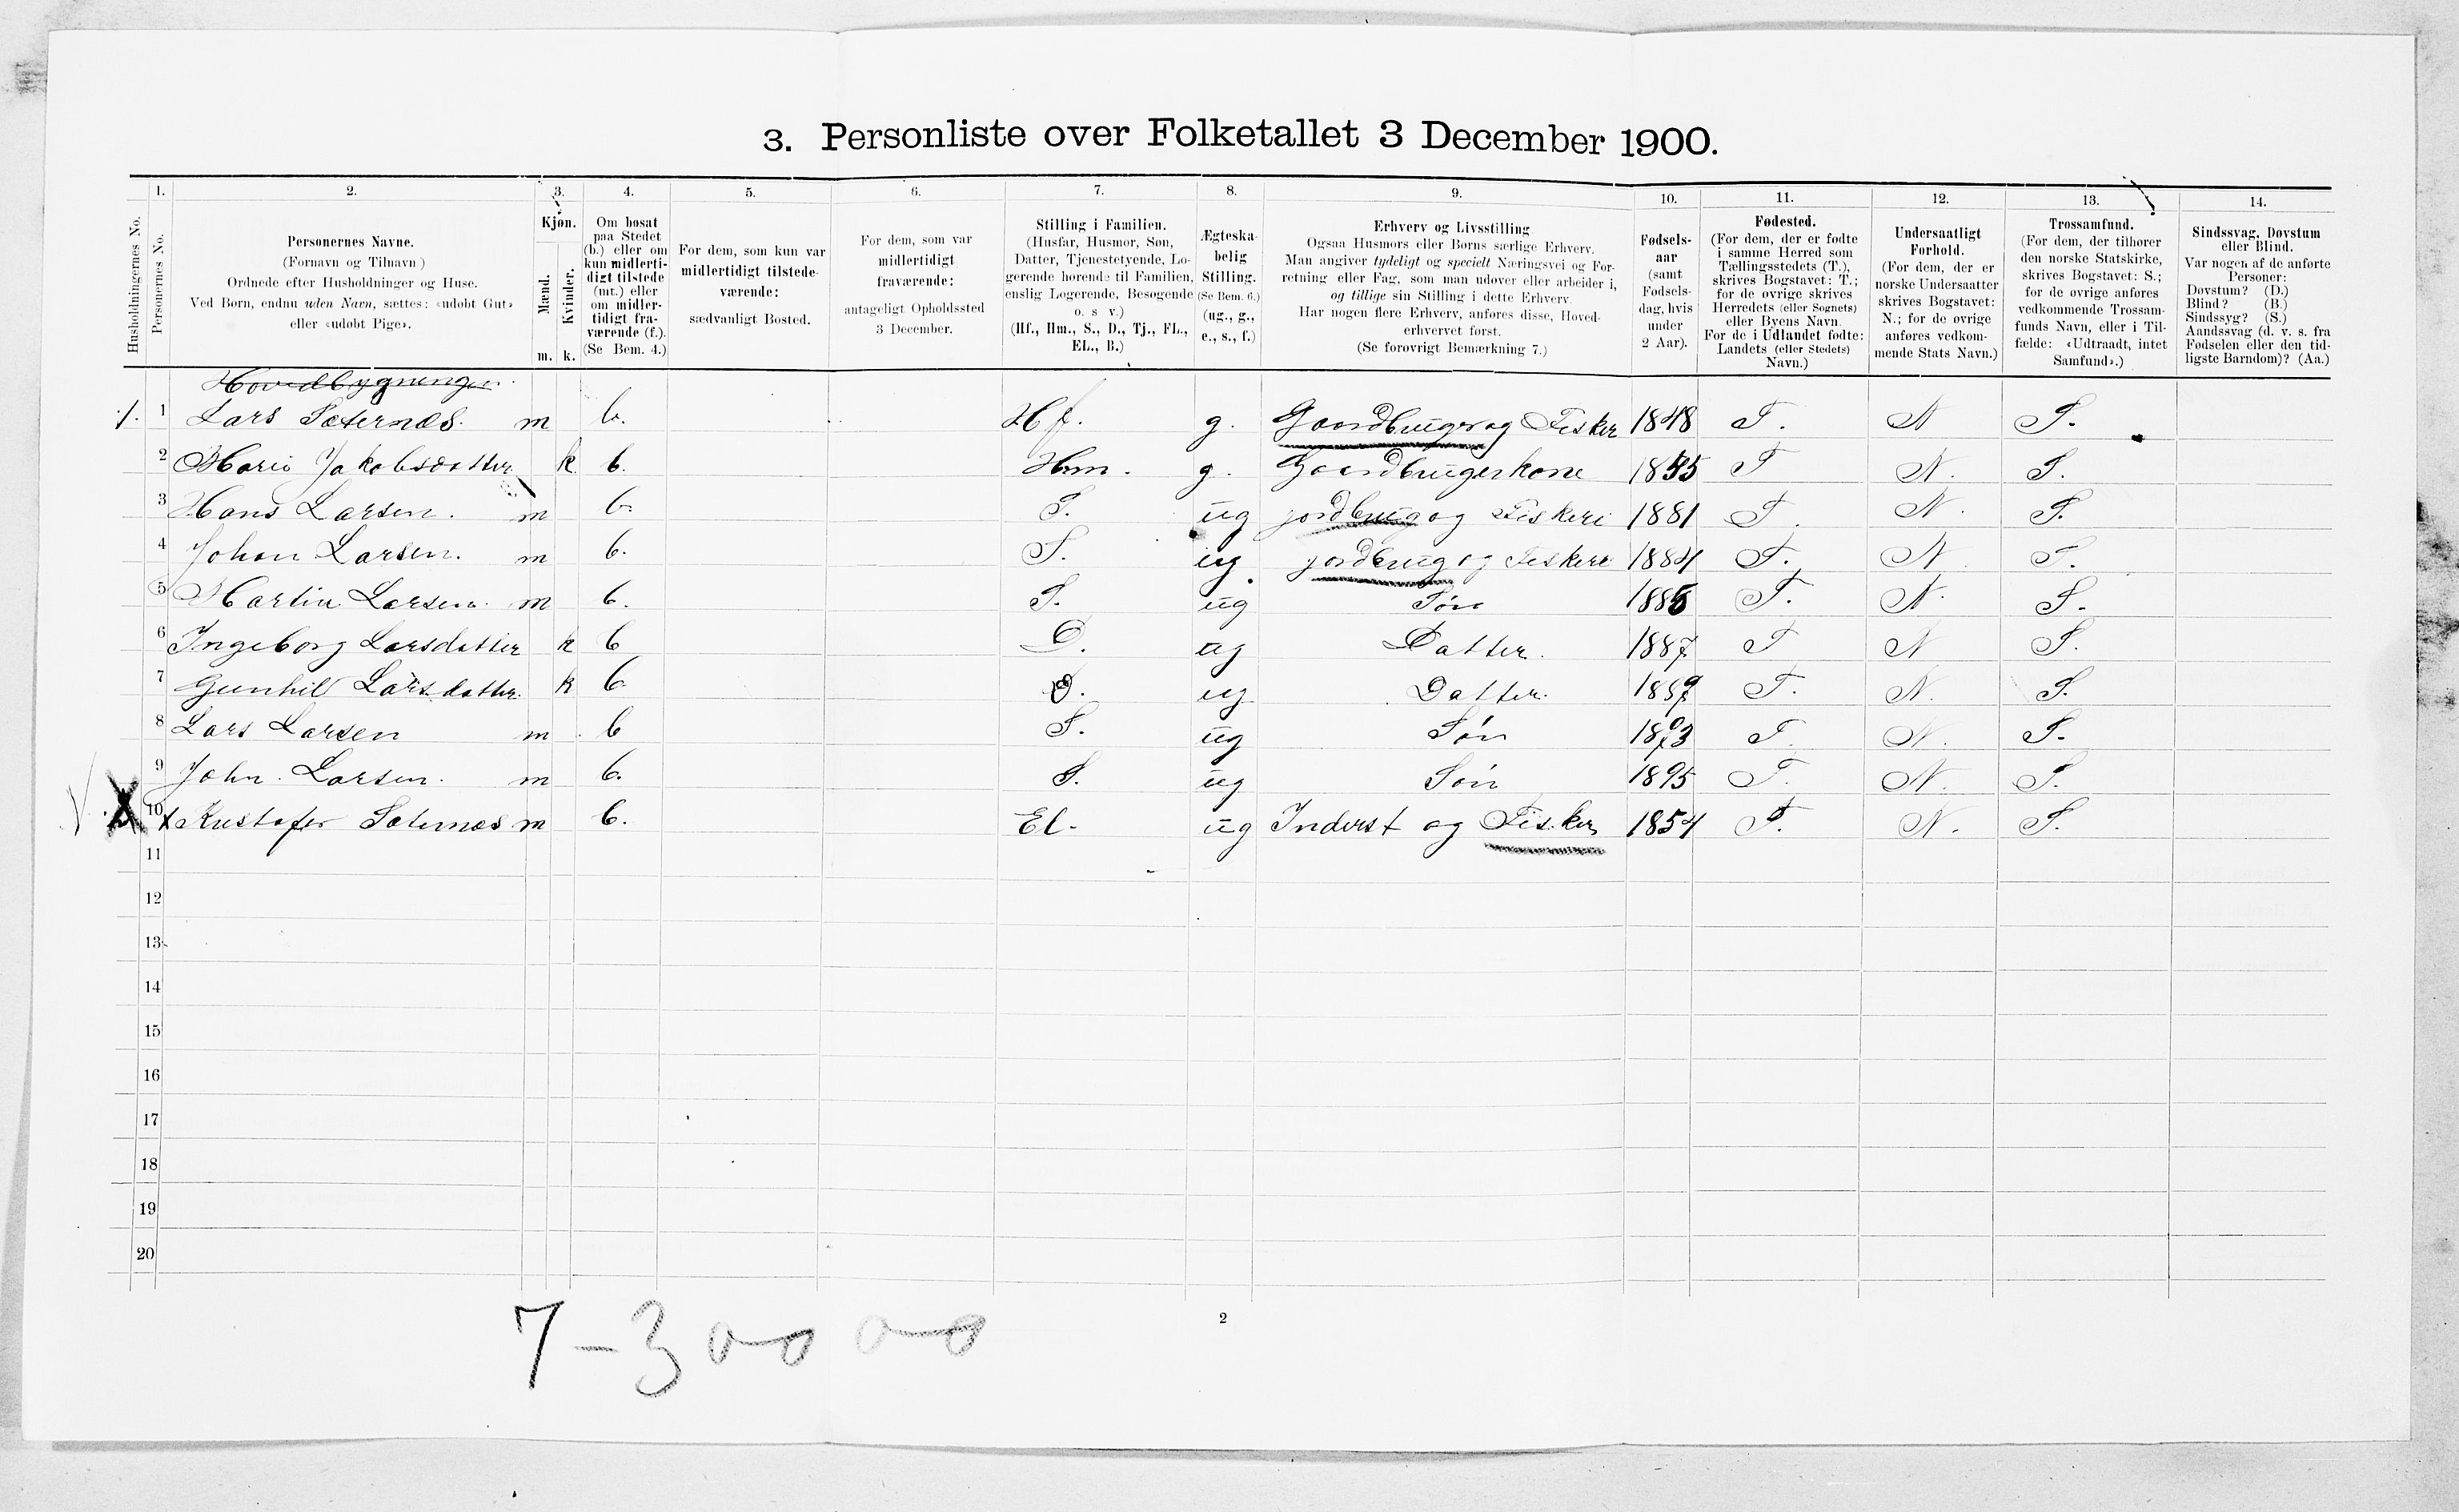 3. Personliste over Folketallet 3 December 1900.
1. 2. 3. 4. 5. 6. 7. 8. 9. 10. 11. 12. 13. 14.
Husholdningernes No.
Personernes No.
Personernes Navne.
(Fornavn og Tilnavn)
Ordnede efter Husholdninger og Huse.
Ved Børn, endnu uden Navn, sættes: «udøbt Gut»
eller «udøbt Pige».
Kjøn.
Mænd.
Kvinder.
m. k.
Om bosat
paa Stedet
(b.) eller om
kun midlerti-
digt tilstede
(mt.) eller
om midler-
tidigt fra-
værende (f.).
(Se Bem. 4.)
For dem, som kun var
midlertidigt tilstede-
værende:
sædvanligt Bosted.
For dem, som var
midlertidigt
fraværende:
antageligt Opholdssted
3 December.
Stilling i Familien.
(Husfar, Husmor, Søn,
Datter, Tjenestetyende, Lo-
gerende hørende til Familien,
enslig Logerende, Besøgende
o. s v.)
(Hf., Hm., S., D., Tj., FL.,
EL., B.)
Ægteska-
belig
Stilling.
(Se Bem. 6.)
(ug., g.,
e., s., f.)
Erhverv og Livsstilling
Ogsaa Husmors eller Børns særlige Erhverv.
Man angiver tydeligt og specielt Næringsvei og For-
retning eller Fag, som man udøver eller arbeider i,
og tillige sin Stilling i dette Erhverv.
Har nogen flere Erhverv, anføres disse, Hoved-
erhvervet først.
(Se forøvrigt Bemærkning 7.)
Fødsels-
aar
(samt
Fødsels-
dag, hvis
under
2 Aar).
Fødested.
(For dem, der er fødte
i samme Herred som
Tællingsstedets (T.),
skrives Bogstavet: T.;
for de øvrige skrives
Herredets (eller Sognets)
eller Byens Navn.
For de i Udlandet fødte:
Landets (eller Stedets)
Navn.)
Undersaatligt
Forhold.
(For dem, der er
norske Undersaatter
skrives Bogstavet:
N.; for de øvrige
anføres vedkom-
mende Stats Navn.)
Trossamfund.
(For dem, der tilhører
den norske Statskirke,
skrives Bogstavet: S.;
for de øvrige anføres
vedkommende Trossam-
funds Navn, eller i Til-
fælde: «Udtraadt, intet
Samfund».)
Sindssvag, Døvstum
eller Blind.
Var nogen af de anførte
Personer:
Døvstum? (D.)
Blind? (B.)
Sindssyg? (S.)
Aandssvag (d. v. s. fra
Fødselen eller den tid-
ligste Barndom)? (Aa.)
Hovedbygningen.
1. 1 Lars Sæternæs. m b. Hf. g. Gaardbruger og Fisker 1848 T. N S.
2 Marie Jakobsdatter k b. Hm. g. Gaardbrugerkone 1855 T N. S.
3 Hans Larsen. m b. S. ug jordbrug og Fiskeri 1881 T. N. S.
4 Johan Larsen. m b. S. ug. jordbrug og Fiskeri 1884 T. N S.
5 Martin Larsen. m b. S. ug Søn 1886 T. N. S.
6 Ingeborg Larsdatter k b D. ug Datter. 1887 T N S.
7 Gunhil Larsdatter. k b. D. ug Datter. T. N. S.
8 Lars Larsen m b S. ug Søn 1893 T. N. S.
9 John. Larsen. m b. S. ug Søn 1895 T. N. S.
X 10 x Kristofer Sæternæs m b. El. ug Inderst og Fisker 1854 T. N. S.
11
12
13
14
15
16
17
18
19
20
7-3 0-0 0-0
2